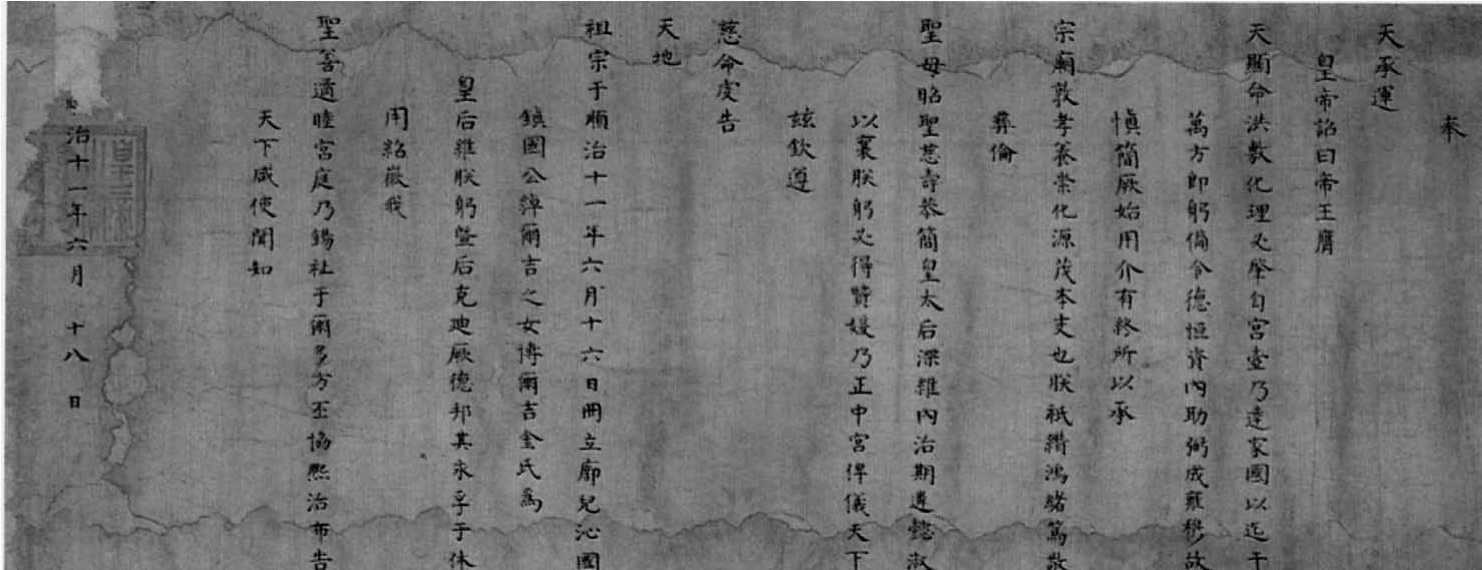 奉
天承運
皇帝詔曰帝王膺
天顯命洪敷化理必肇自宮壼乃達家國以迄于
萬方卽躬備令德恒資內助弼成雍穆故
慎簡厥始用介有終所以承
宗廟敦孝養崇化源茂本支也朕祇纘鴻緒篤敬
彝倫
聖母昭聖慈壽恭簡皇太后深維內治期遴懿淑
以襄朕躬必得賢媛乃正中宮俾儀天下
茲欽遵
慈命虔告
天地
祖宗于順治十一年六月十六日冊立廓兒沁國
鎮國公綽爾吉之女博爾吉金氏為
皇后維朕躬曁后克迪厥德邦其永孚于休
用紹徽我
聖善適睦宮庭乃錫祉于爾多方丕協熙治布告
天下咸使聞知
治十一年六月十八日